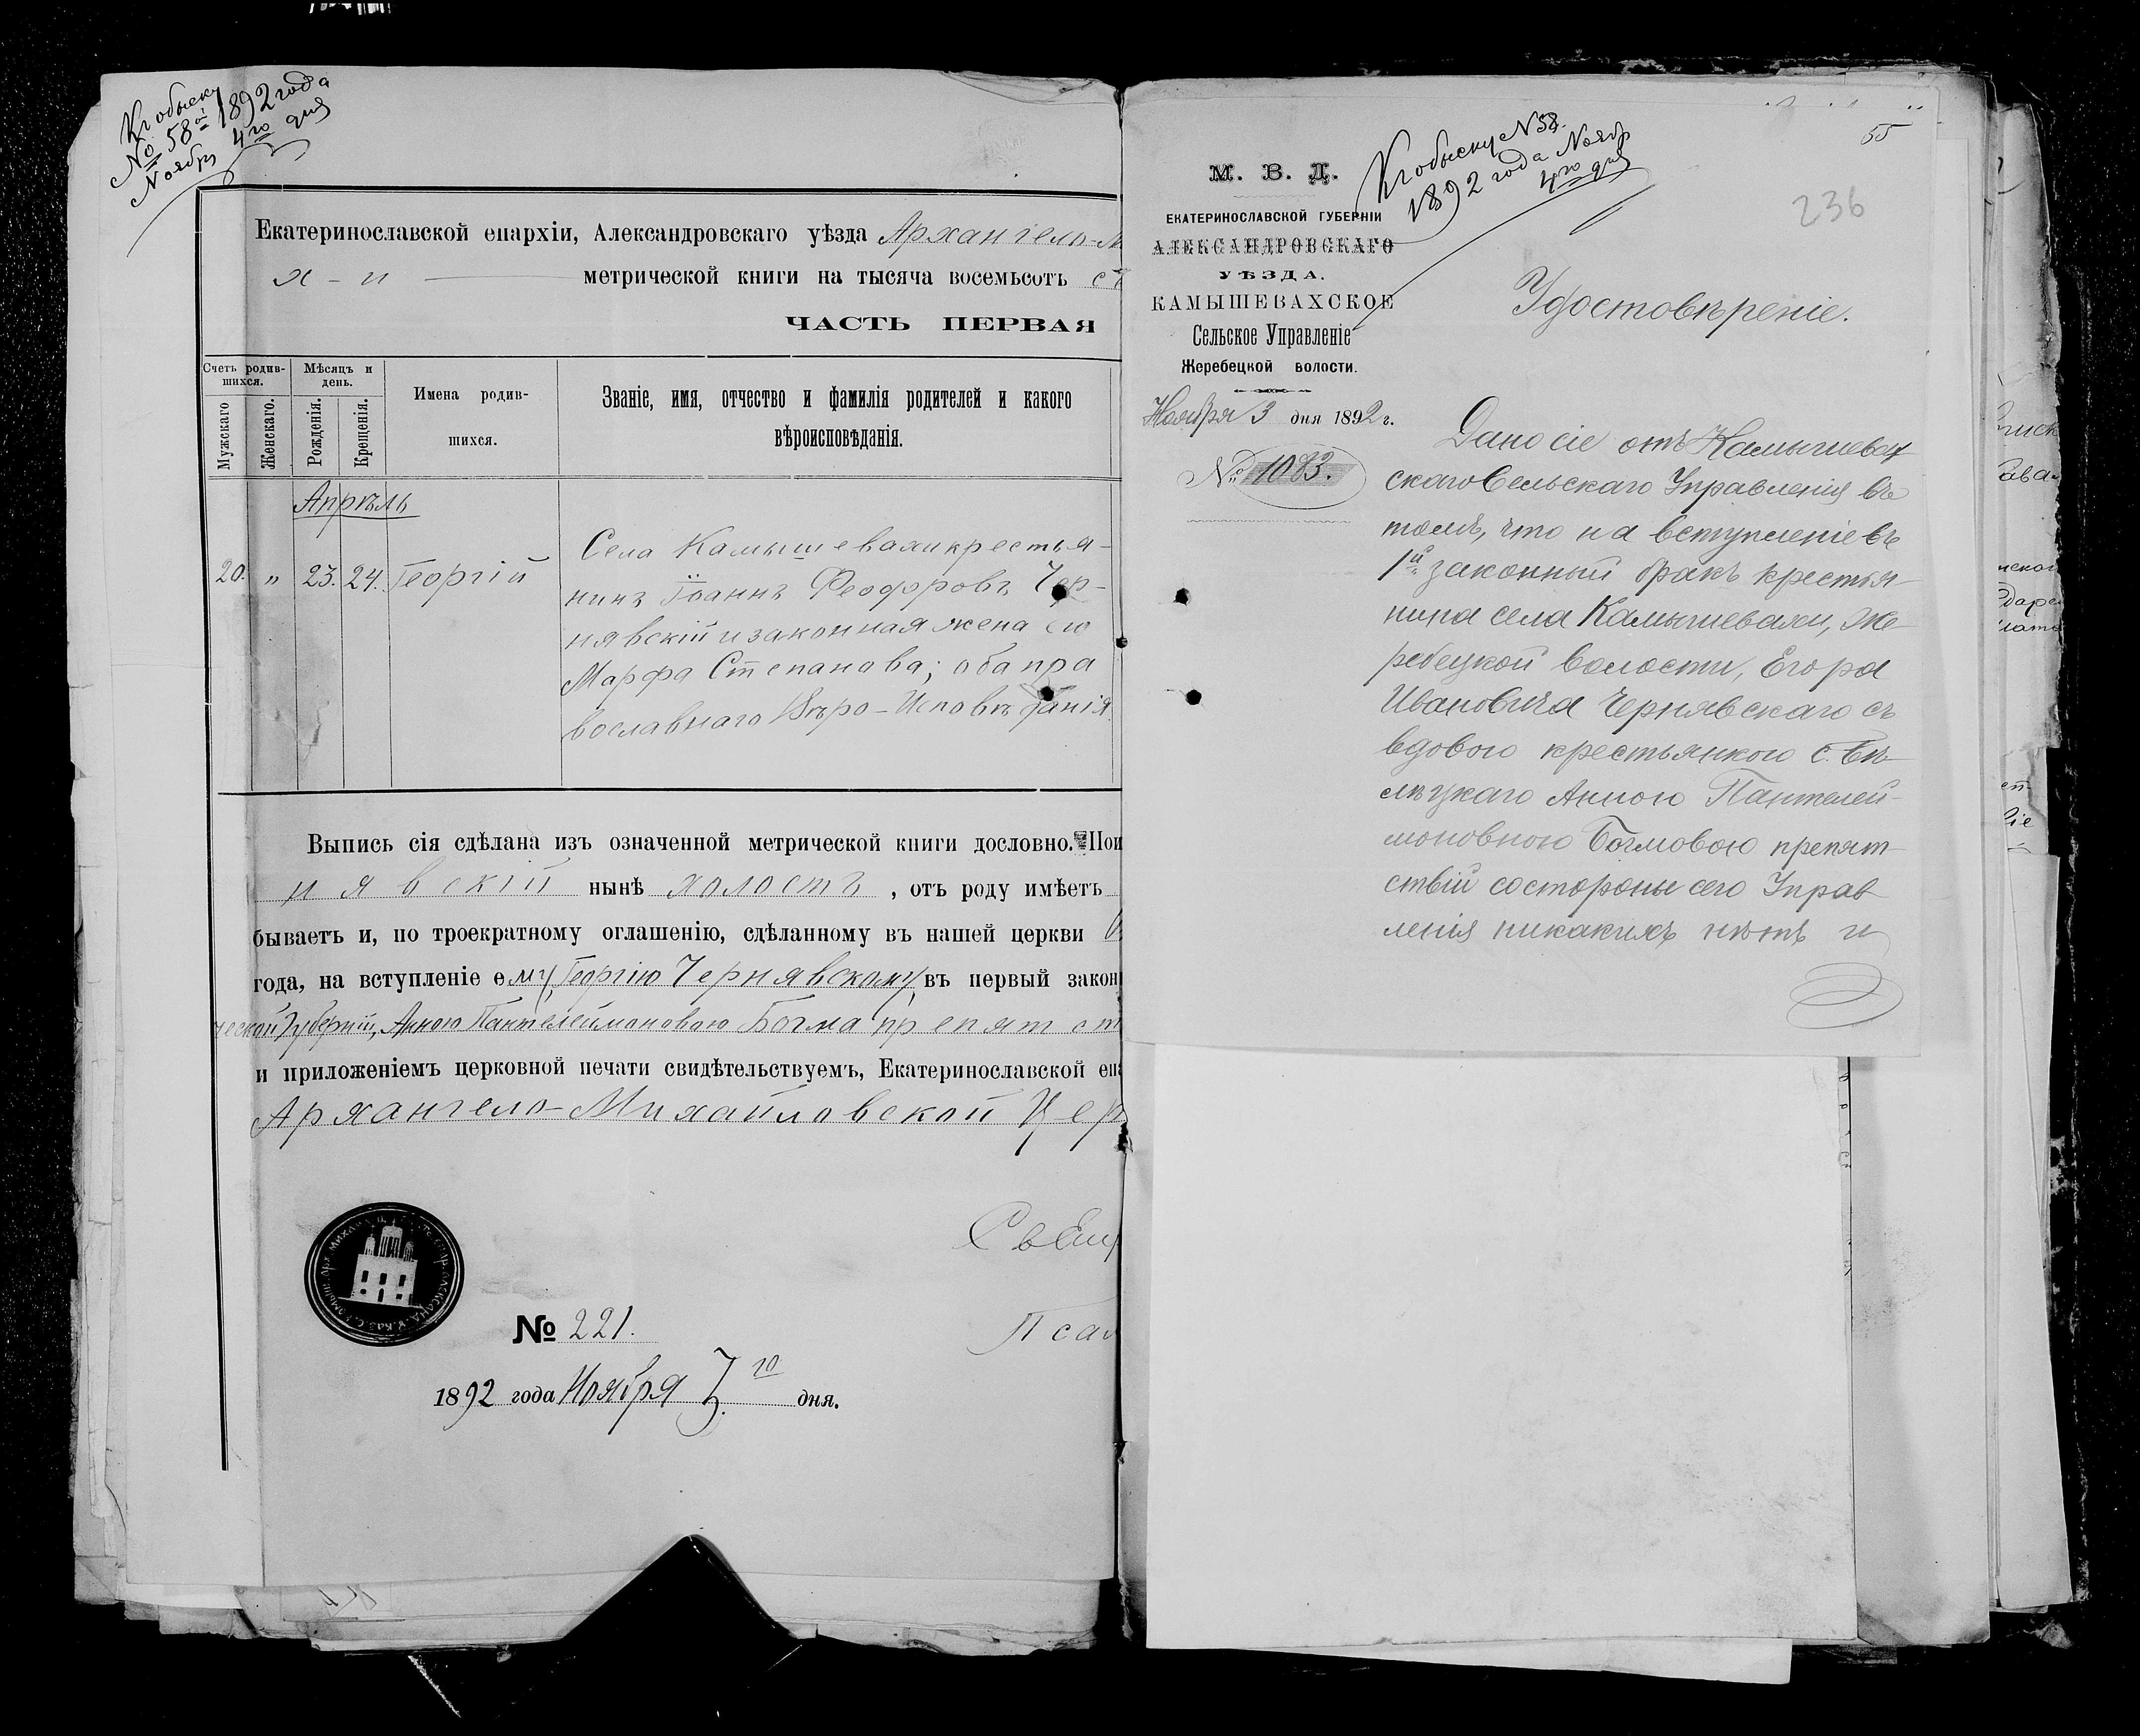 Къ обыску
№ 58й 1892 года
Ноября 4го дня
Екатеринославской епархіи, Александровскаго уѣзда Архангело-М
х - и метрической книги на тысяча восемьсотъ
ЧАСТЬ ПЕРВАЯ
Счетъ родившихся.
Мужскаго
Женскаго.
Мѣсяцъ и день.
Рожденія.
Крещенія.
Имена родившихся.
Званіе, имя, отчество и фамилія родителей и какого
вѣроисповѣданія.
Апрѣль
20. „ 23. 24. Георгій
Села Камышевахи крестья-
нинъ Іоаннъ Феодоровъ Чер-
нявскій и законная жена его
Марфа Степанова; оба пра
вославнаго Вѣро-Исповѣданія.
Выпись сія сдѣлана изъ означенной метрической книги дословно. Пои
нявскій нынѣ холостъ, отъ роду имѣетъ
бываетъ и, по троекратному оглашенію, сдѣланному въ нашей церкви
года, на вступленіе ему, Георгію Чернявскому, въ первый закон
ческой Губерніи, Анною Пантелеймоновою Богма препятст
и приложеніемъ церковной печати свидѣтельствуемъ, Екатеринославской епа
Архангело-Михайловской Цер
Свящ
Псал
№ 221.
1892 года Ноября 3.го дня.
55
236
Къ обыску № 58.
1892 года Ноябр
4го дня
М. В. Д.
ЕКАТЕРИНОСЛАВСКОЙ ГУБЕРНІИ
АЛЕКСАНДРОВСКАГО
УѢЗДА.
КАМЫШЕВАХСКОЕ
Сельское Управленіе
Жеребецкой волости.
Ноября 3 дня 1892 г.
№ 1083.
Удостовѣреніе.
Дано сіе отъ Камышевах
скаго Сельскаго Управленія въ
томъ, что на вступленіе въ
1й законный бракъ крестья-
нина села Камышевахи, Же
ребецкой волости, Егора
Ивановича Чернявскаго съ
вдовою крестьянкою с. Бѣ-
лецкаго Анною Пантелей-
моновною Богмовою препят-
ствій со стороны сего Управ
ленія никакихъ нѣтъ и